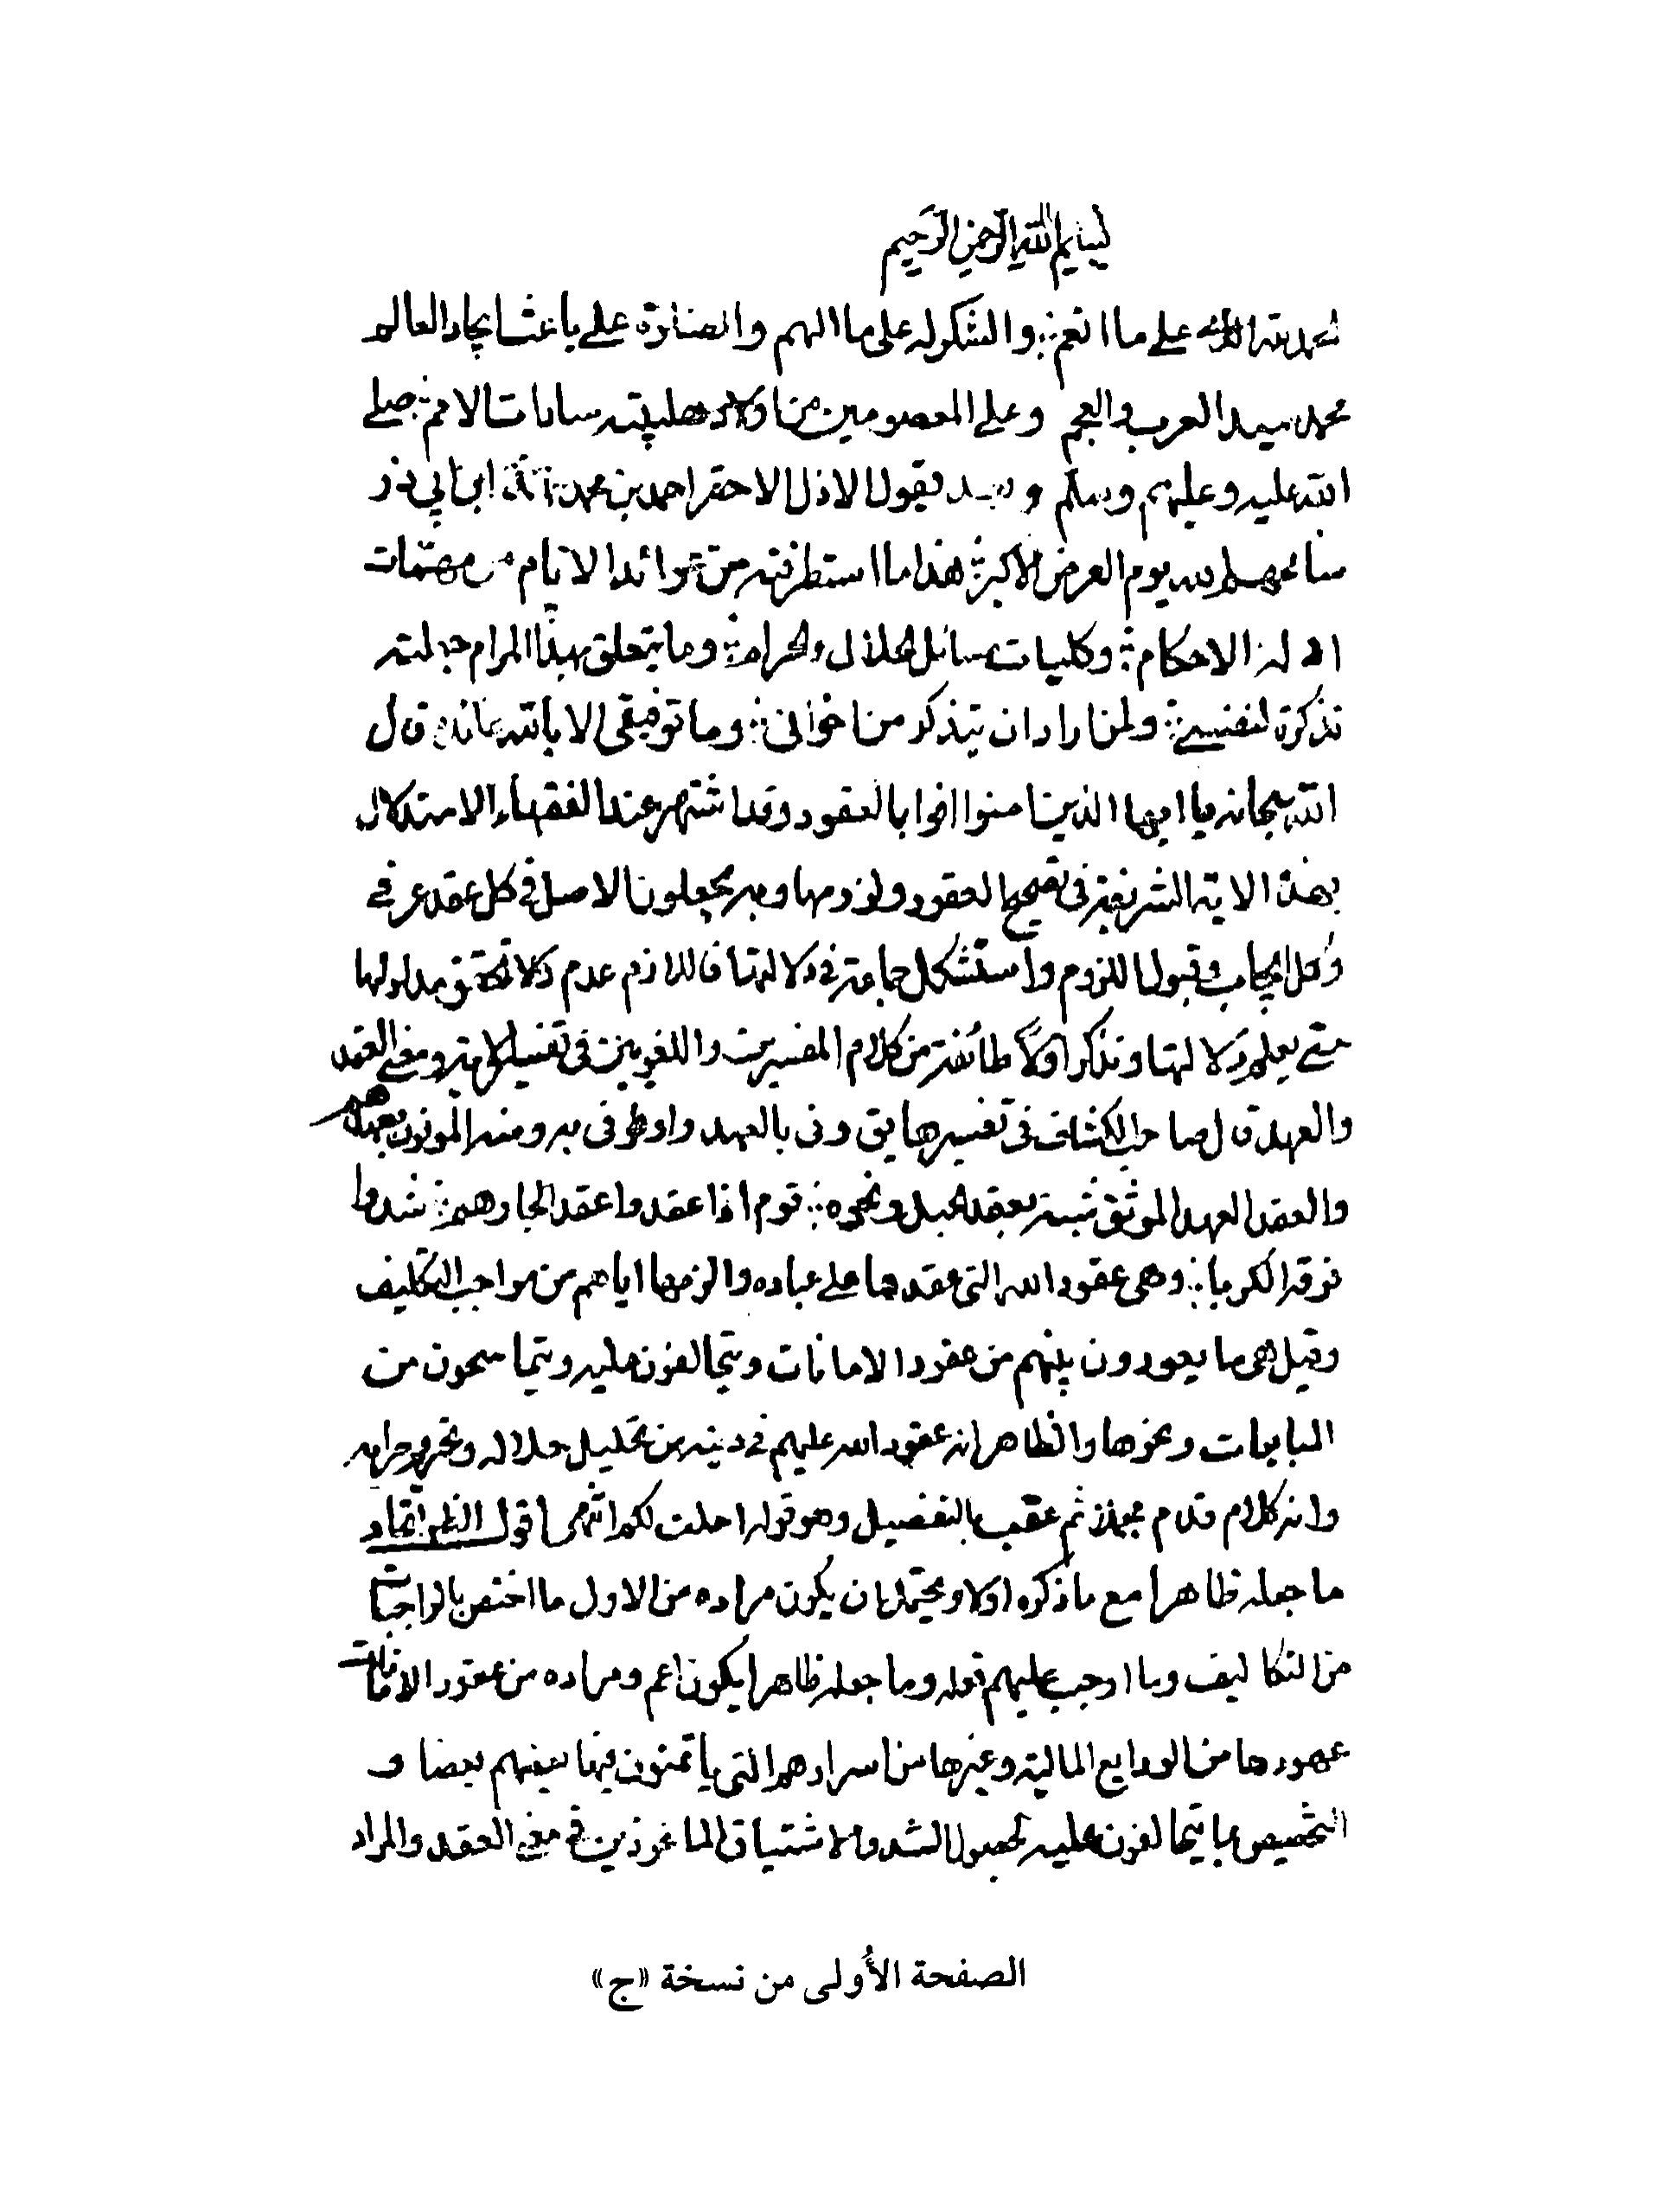 بسم الله الرحمن الرحيم
الحمد لله على ما انعم والشكر له على ما الهم والصلوة على باعث ايجاد العالم
محمد سيد العرب والعجم وعلى المعصومين من اولاده سادات الامم صلى
الله عليه وعليهم وسلم وبعد فيقول الاذل الاحقر احمد بن محمد ابن ابي ذر
يوم العرض الاكبر هذا ما استطرفته من عوائد الايام من مهمات
ادلة الاحكام وكليات مسائل الحلال والحرام وما يتعلق بهذا المرام جعلته
تذكرة لنفسي ولمن اراد ان يتذكر من اخواني وما توفيقي الا بالله عائدة قال
الله سبحانه يا ايها الذين امنوا اوفوا بالعقود وقد اشتهر عند الفقهاء الاستدلال
بهذه الاية الشريفة في تصحيح العقود ولزومها وبه يجعلون الاصل في كل عقد عرفي
وكل ايجاب وقبول اللزوم واستشكل جماعة في دلالتها فاللازم مدلولها
حتى يعلم دلالتها ونذكر اولا طائفة من كلام المفسرين واللغويين في تفسير الاية ومعنى العقد
والعهد قال صاحب الكشاف في تفسيرها يق وفى بالعهد واوفى به ومنه الموفون بعهدهم
والعقد العهد الموثق شبه بعقد الحبل ونحوه قوم اذا عقدوا عقدا لجارهم شدوا
فوقه الكربا وهي عقود الله التي عقدها على عباده والزمها اياهم من مواجب التكليف
وقيل هي ما يعقدون بينهم من عقود الامانات ويتحالفون عليه ويتماسحون من
المبايعات ونحوها والظاهر انه عقود الله عليهم في دينه من تحليل حلاله وتحريم حرامه
وانه كلام قدم مجملا ثم عقب بالتفصيل وهو قوله احلت لكم انتهى اقول الظاهر اتحاد
ما جعله ظاهرا مع ما ذكره اولا ويحتمل ان يكون مراده من الاول ما اختص بالواجبات
من التكاليف وما اوجب عليهم فعله وما جعله ظاهرا يكون اعم ومراده من عقود الامانات
عهودها من الودايع المالية وغيرها من اسرارهم التي ياتمنون فيها بعضهم بعضا و
التخصيص بما يتحالفون عليه لحصول الشد والاستيثاق الماخوذين في معنى العقد والمراد
الصفحة الأولى من نسخة «ج»